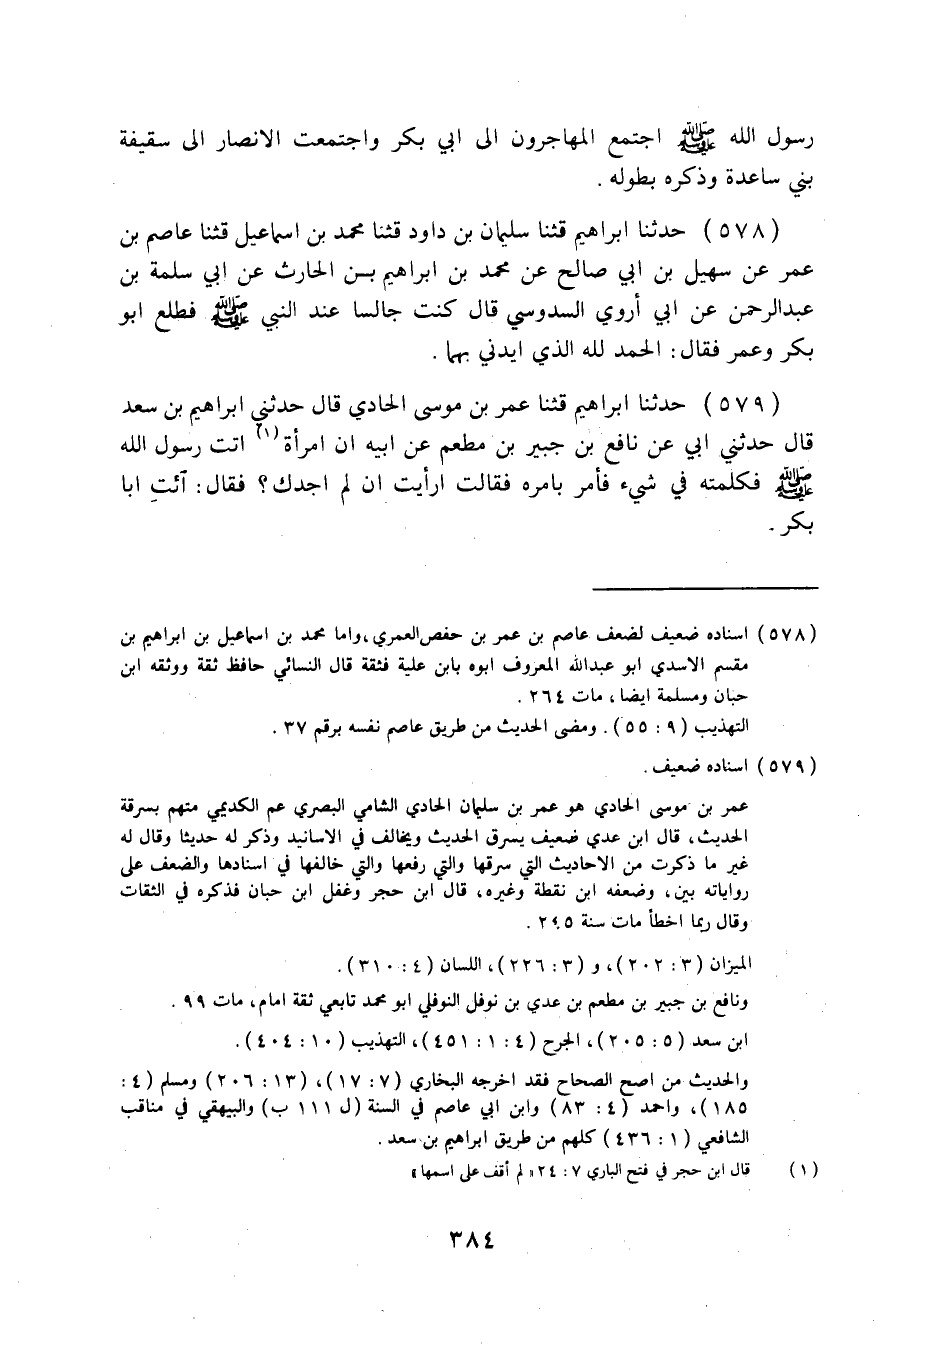 رسول الله ﷺ اجتمع المهاجرون الى ابي بكر واجتمعت الانصار الى سقيفة
بني ساعدة وذكره بطوله .
(٥٧٨) حدثنا ابراهيم قثنا سليمان بن داود قثنا محمد بن اسماعيل قثنا عاصم بن
عمر عن سهيل بن ابي صالح عن محمد بن ابراهيم بـن الحارث عن ابي سلمة بن
عبدالرحمن عن ابي أروي السدوسي قال كنت جالسا عند النبي ﷺ فطلع ابو
بكر وعمر فقال: الحمد لله الذي ايدني بهما .
(٥٧٩) حدثنا ابراهيم قثنا عمر بن موسى الحادي قال حدثني ابراهيم بن سعد
قال حدثني ابي عن نافع بن جبير بن مطعم عن ابيه ان امرأة (١) اتت رسول الله
ﷺ فكلمته في شيء فأمر بامره فقالت ارأيت ان لم اجدك؟ فقال: آئتِ ابا
بكر .
(٥٧٨) اسناده ضعيف لضعف عاصم بن عمر بن حفص العمري، واما محمد بن اسماعيل بن ابراهيم بن
مقسم الاسدي ابو عبدالله المعروف ابوه بابن علية فثقة قال النسائي حافظ ثقة ووثقه ابن
حبان ومسلمة ايضا، مات ٢٦٤ .
التهذيب (٩ : ٥٥). ومضى الحديث من طريق عاصم نفسه برقم ٣٧ .
(٥٧٩) اسناده ضعيف .
عمر بن موسى الحادي هو عمر بن سليمان الحادي الشامي البصري عم الكديمي متهم بسرقة
الحديث، قال ابن عدي ضعيف يسرق الحديث ويخالف في الاسانيد وذكر له حديثا وقال له
غير ما ذكرت من الاحاديث التي سرقها والتي رفعها والتي خالفها في اسنادها والضعف على
رواياته بين، وضعفه ابن نقطة وغيره، قال ابن حجر وغفل ابن حبان فذكره في الثقات
وقال ربما اخطأ مات سنة ٢٤٥ .
الميزان (٣ : ٢٠٢)، و (٣ : ٢٢٦)، اللسان (٤ : ٣١٠).
ونافع بن جبير بن مطعم بن عدي بن نوفل النوفلي ابو محمد تابعي ثقة امام، مات ٩٩ .
ابن سعد (٥ : ٢٠٥)، الجرح (٤ : ١ : ٤٥١)، التهذيب (١٠ : ٤٠٤).
والحديث من اصح الصحاح فقد اخرجه البخاري (٧ : ١٧)، (١٣ : ٢٠٦) ومسلم (٤ :
١٨٥)، واحمد (٤ : ٨٣) وابن ابي عاصم في السنة (ل ١١١ ب) والبيهقي في مناقب
الشافعي (١ : ٤٣٦) كلهم من طريق ابراهيم بن سعد .
(١) قال ابن حجر في فتح الباري ٧ : ٢٤ «لم أقف على اسمها»
٣٨٤